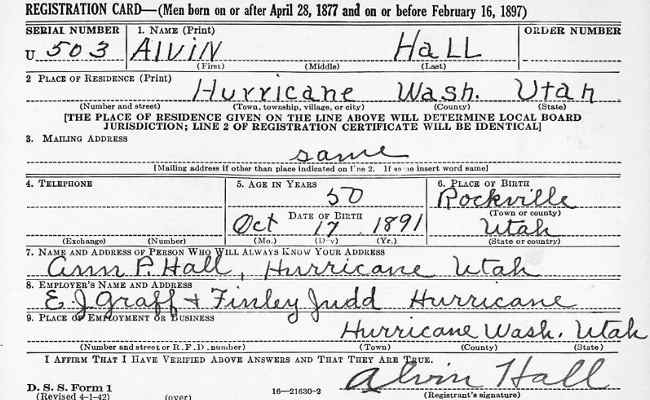 REGISTRATION CARD—(Men born on or after April 28, 1877 and on or before February 16, 1897)
SERIAL NUMBER 1. NAME (Print) ORDER NUMBER
U 503 Alvin Hall
(First) (Middle) (Last)
2 PLACE OF RESIDENCE (Print)
Hurricane Wash. Utah
(Number and street) (Town, township, village, or city) (County) (State)
[THE PLACE OF RESIDENCE GIVEN ON THE LINE ABOVE WILL DETERMINE LOCAL BOARD
JURISDICTION; LINE 2 OF REGISTRATION CERTIFICATE WILL BE IDENTICAL]
3. MAILING ADDRESS
same
[Mailing address if other than place indicated on line 2. If same insert word same]
4. TELEPHONE 5. AGE IN YEARS 6. PLACE OF BIRTH
50 Rockville
DATE OF BIRTH (Town or county)
Oct 17 1891 Utah
(Exchange) (Number) (Mo.) (Day) (Yr.) (State or country)
7. NAME AND ADDRESS OF PERSON WHO WILL ALWAYS KNOW YOUR ADDRESS
Ann P. Hall, Hurricane Utah
8. EMPLOYER'S NAME AND ADDRESS
E. J. Graff + Finley Judd Hurricane
9. PLACE OF EMPLOYMENT OR BUSINESS
Hurricane Wash. Utah
(Number and street or R. F. D. number) (Town) (County) (State)
I AFFIRM THAT I HAVE VERIFIED ABOVE ANSWERS AND THAT THEY ARE TRUE.
Alvin Hall
D. S. S. Form 1
(Revised 4-1-42) (over) 16—21630-2 (Registrant's signature)